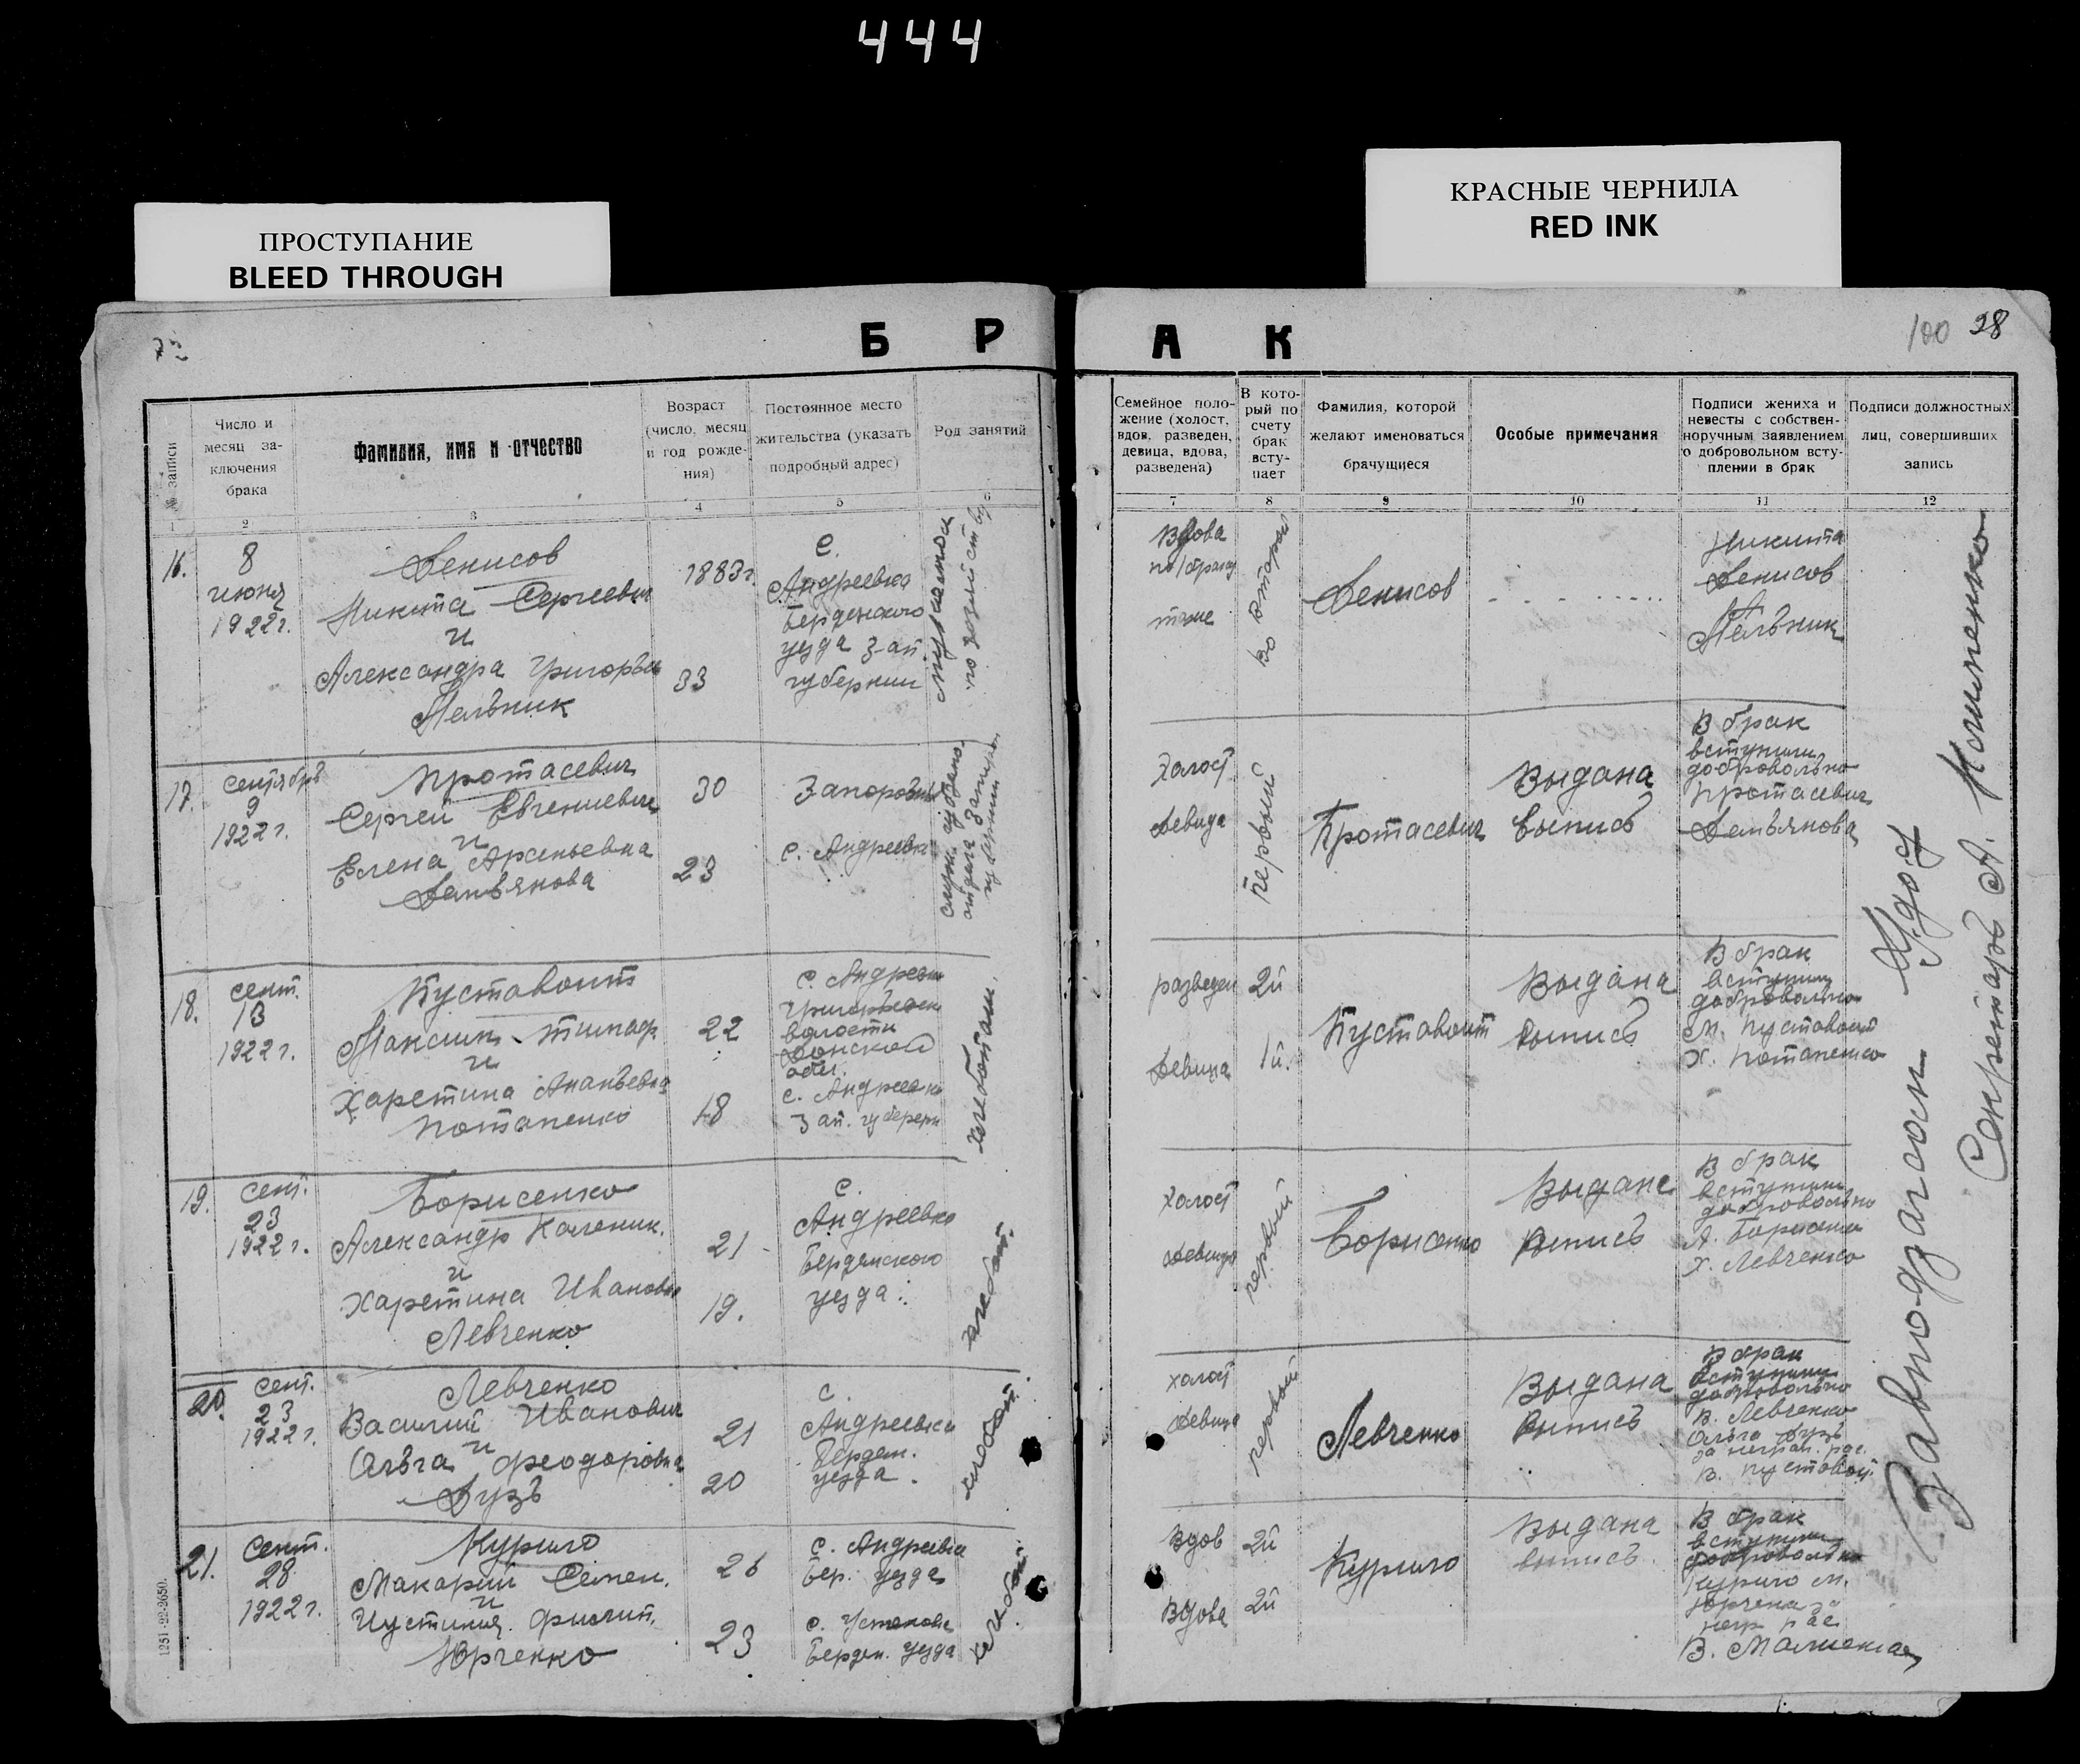 444
ПРОСТУПАНИЕ
BLEED THROUGH
КРАСНЫЕ ЧЕРНИЛА
RED INK
Б Р А К
100 28
№ записи
Число и месяц за-
ключения
брака
Фамилия, имя и отчество
Возраст
(число, месяц
и год рожде-
ния)
Постоянное место
жительства (указать
подробный адрес)
Род занятий
Семейное поло-
жение (холост,
вдов, разведен,
девица, вдова,
разведена)
В кото-
рый по
счету
брак
всту-
пает
Фамилия, которой
желают именоваться
брачущиеся
Особые примечания
Подписи жениха и
невесты с собствен-
норучным заявлением
о добровольном всту-
плении в брак
Подписи должностных
лиц, совершивших
запись
1 2 3 4 5 6 7 8 9 10 11 12
16.
8
июня
1922 г.
Денисов
Никита Сергеевич
и
Александра Григорьев
Мельник
1883 г.
33
с.
Андреевка
Бердянского
уезда Зап
губернии
Вдова
тоже
во второй
Денисов
Никита
Денисов
Мельник
17.
сентябрь
9
1922 г.
Протасевич
Сергей Евгениевич
и
Елена Арсеньевна
Демьянова
30
23
Запорожье
с. Андреевка
Холост
Девица
первый
Протасевич
Выдана
выпись
В брак
вступили
добровольно
Протасевич
Демьянова
18.
сент.
13
1922 г.
Пустовоит
Максим Тимоф.
и
Харетина Ананьевна
Потапенко
22
18
с. Андреевк
волости
Донской
обл.
с. Андреевка
Зап. губерни
хлебопаш.
разведен
Девица
2й
1й.
Пустовоит
Выдана
выпись
В брак
вступили
добровольно
М. Пустовоит
Х. Потапенко
19.
сент.
23
1922 г.
Борисенко
Александр Каленик.
и
Харетина Ивановна
Левченко
21
19.
с.
Андреевка
Бердянского
уезда
хлебоп.
Холост
Девица
первый
Борисенко
Выдана
выпись
В брак
вступили
добровольно
А. Борисенко
Х. Левченко
20.
сент.
23
1922 г.
Левченко
Василий Иванович
и
Ольга Феодоровна
Дузь
21
20
с.
Андреевка
Бердян.
уезда.
хлебоп.
холост
Девица
первый
Левченко
Выдана
выпись
В брак
вступили
добровольно
В. Левченко
Ольга Дузь
за неграм. рас.
В. Пустовой
21.
Сент.
28
1922 г.
Курило
Макарий Семен.
и
Иустиния Филип.
Юрченко
26
23
с. Андреевка
Бер. уезда
Бердян. уезда
хлебоп.
Вдов
Вдова
2й
2й
Курило
Выдана
выпись
В брак
вступили
добровольно
Курило М.
Юрченко за
негр рас
Завподзагсом
Секретарь А.
1251-22-2650.